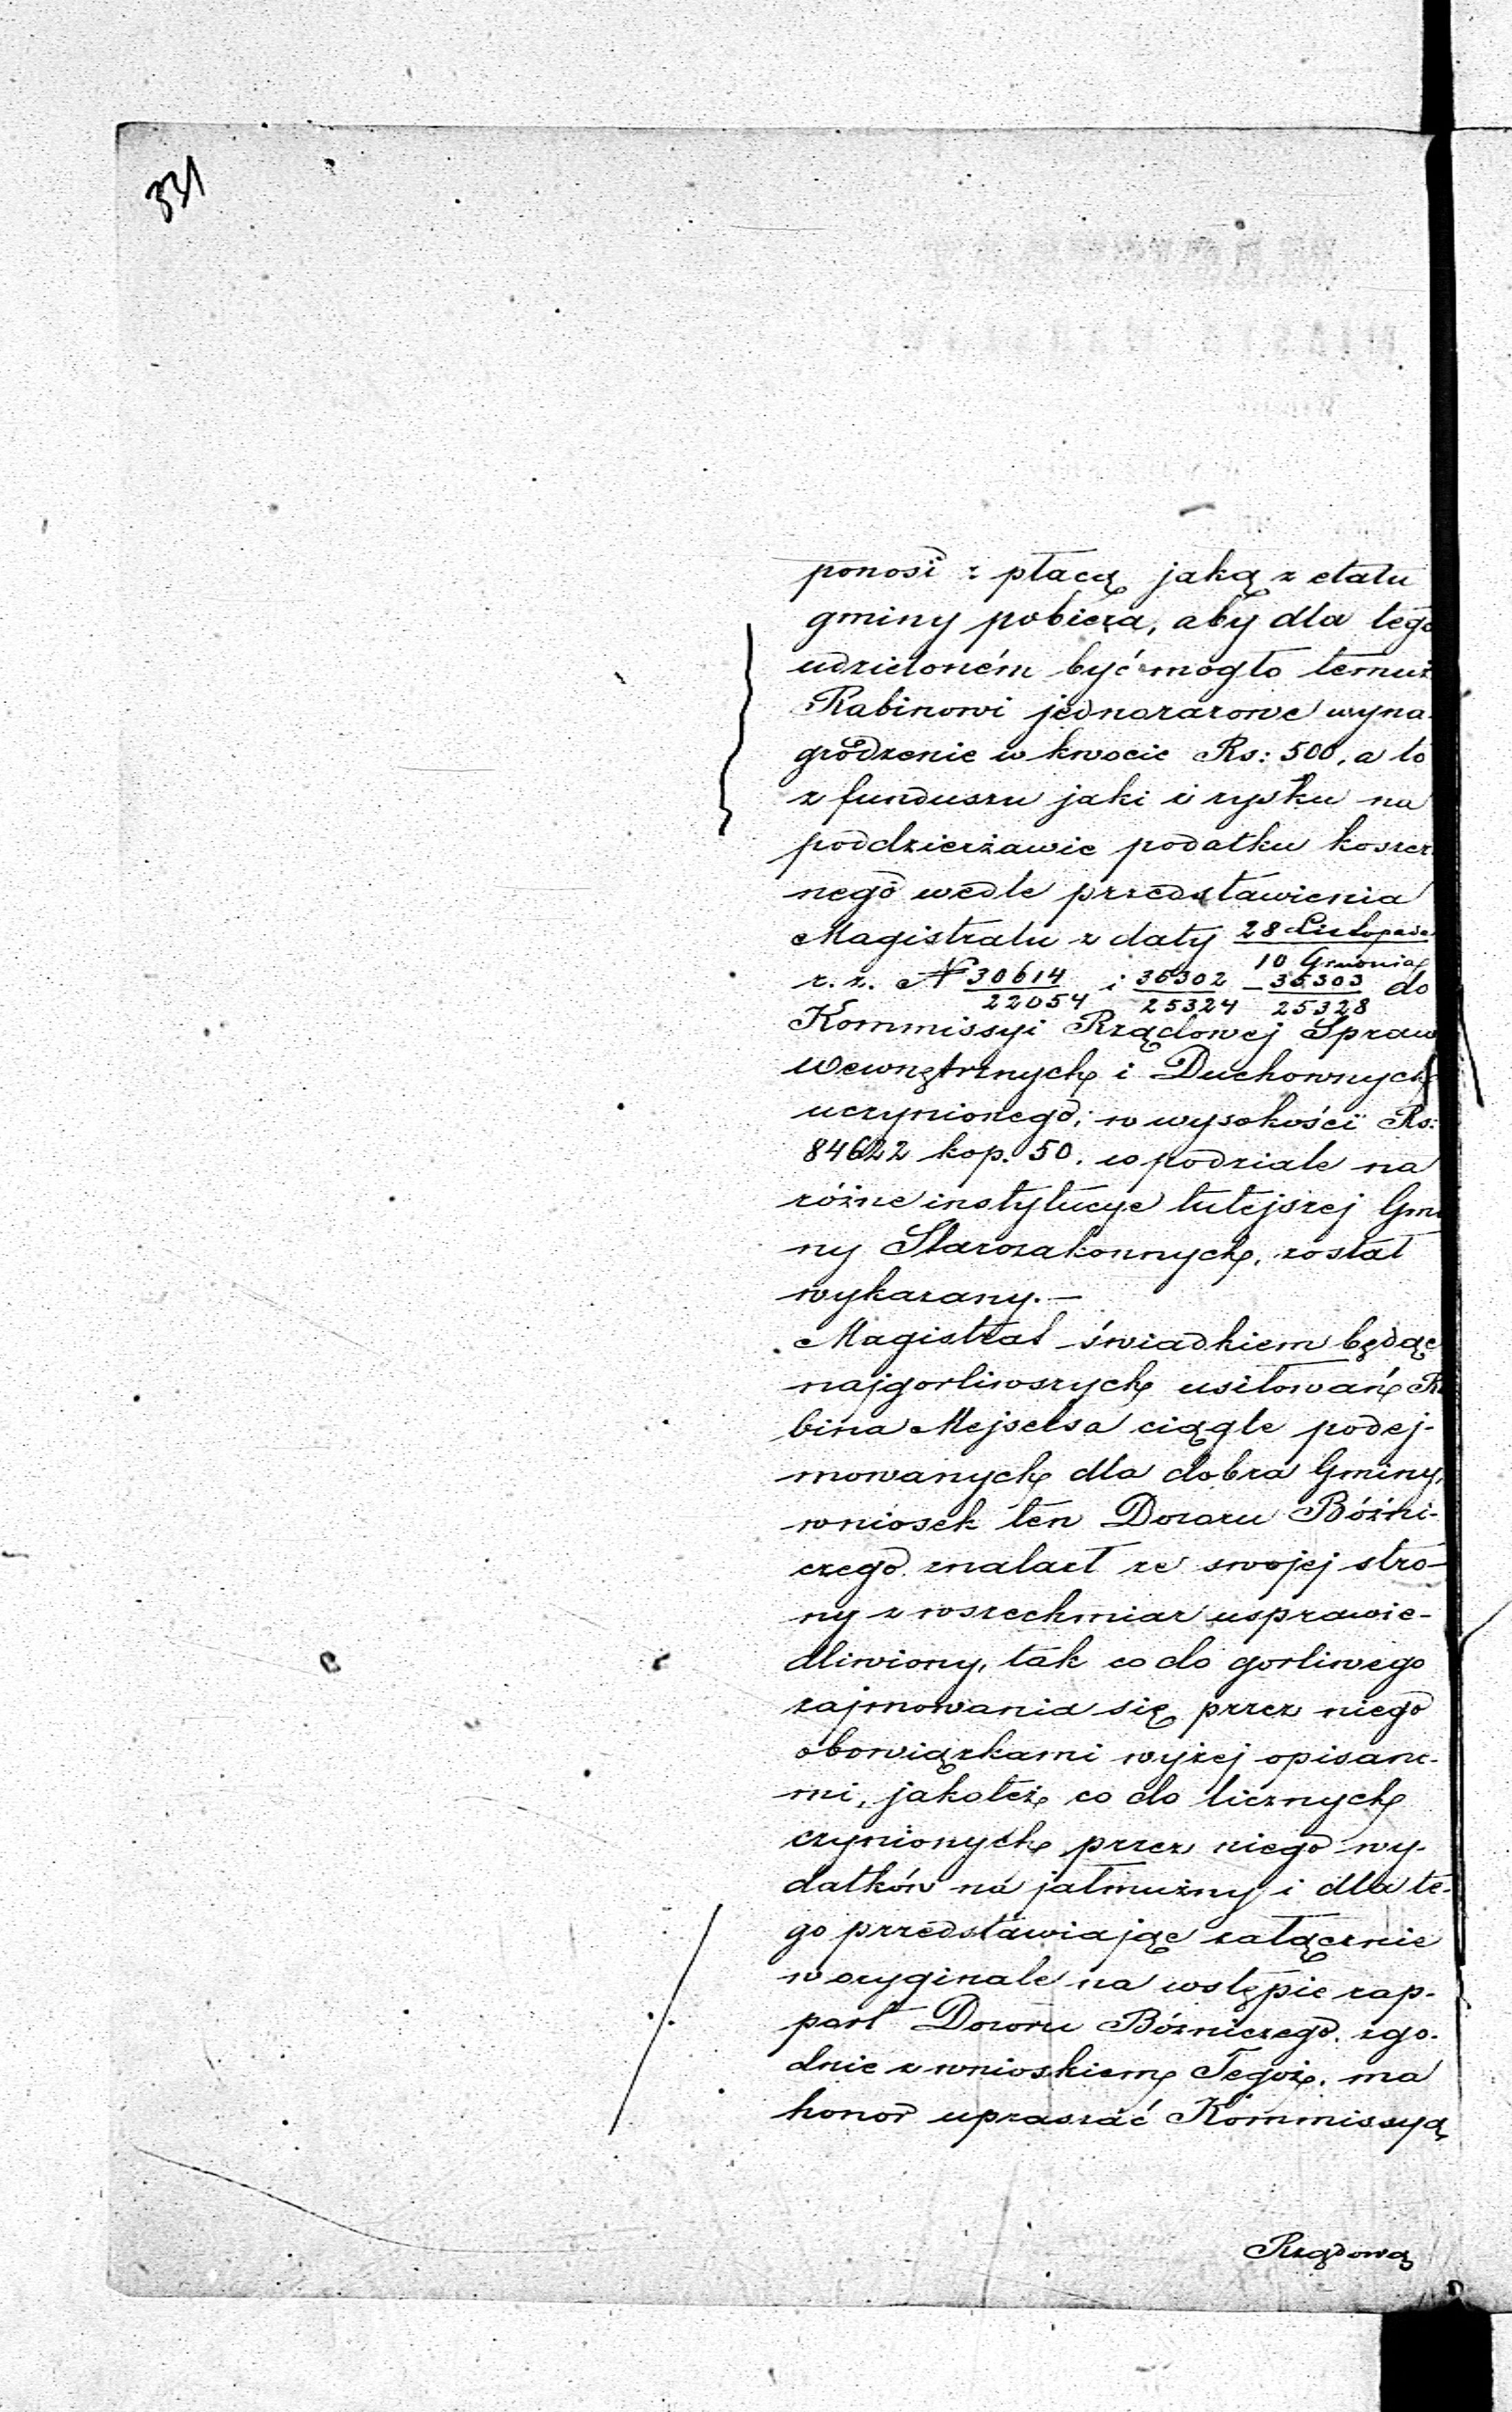 331
ponosi z płacą jaką z etatu
gminy pobiera, aby dla tego
udzieloném być mogło temuż
Rabinowi jednorazowe wyna-
grodzenie w kwocie Rs: 500, a to
z funduszu jaki z zysku na
poddzierżawie podatku koszer
nego wedle przedstawienia
Magistratu z daty 28 Listopada
10 Grudnia
r. z. N 30614/22054 i 35302/25324 – 35303/25328 do
Kommissyi Rządowej Spraw
Wewnętrznych i Duchownych
uczynionego; w wysokości Rs:
84622 kop. 50. w podziale na
różne instytucye tutejszej Gmi
ny Starozakonnych, został
wykazany. —
Magistrat świadkiem będąc
najgorliwszych usiłowań Ra
bina Mejselsa ciągle podej-
mowanych dla dobra Gminy,
wniosek ten Dozoru Bóźni-
czego znalazł ze swojej stro-
ny z wszechmiar usprawie-
dliwiony, tak co do gorliwego
zajmowania się przez niego
obowiązkami wyżej opisane-
mi, jakoteż co do licznych
czynionych przez niego wy-
datków na jałmużny i dla te-
go przedstawiając załącznie
w oryginale na wstępie rap-
port Dozoru Bóźniczego. zgo-
dnie z wnioskiem Tegoż. ma
honor upraszać Kommissyą
Rządową